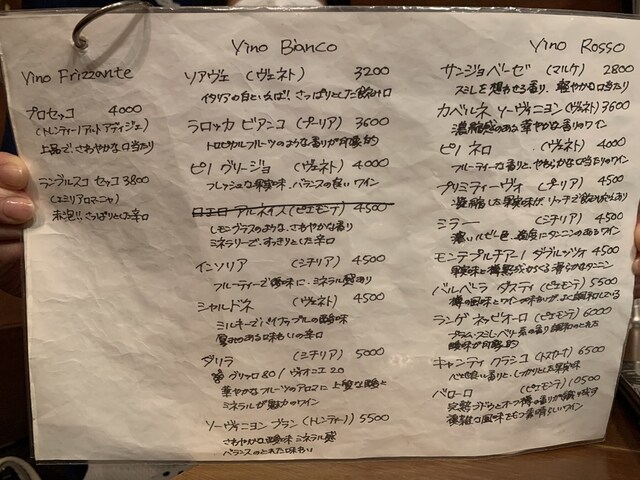 Vino Frizzante
プロセッコ 4000
(トレンティーノアルトアディジェ)
上品で、さわやかな口当たり
ランブルスコ セッコ 3800
(エミリアロマーニャ)
赤泡!!さっぱりとした辛口
Vino Bianco
ソアヴェ (ヴェネト) 3200
イタリアの白といえば!さっぱりとした飲み口
ラロッカ ビアンコ (プーリア) 3600
トロピカルフルーツのような香りが印象的
ピノ グリージョ (ヴェネト) 4000
フレッシュな果実味、バランスの良いワイン
ロエロ アルネイス (ピエモンテ) 4500
レモングラスのような、さわやかな香り
ミネラリーで、すっきりとした辛口
インソリア (シチリア) 4500
フルーティーで酸味に、ミネラル感あり
シャルドネ (ヴェネト) 4500
ミルキーでパイナップルの酸味
厚みのある味わいの辛口
ダリラ (シチリア) 5000
グリッロ80/ヴィオニエ20
華やかなフルーツのアロマに上質な酸と
ミネラルが魅力のワイン
ソーヴィニヨン ブラン (トレンティーノ) 5500
さわやかな酸味 ミネラル感
バランスのとれた味わい
Vino Rosso
サンジョベーゼ (マルケ) 2800
スミレを想わせる香り、軽やかな口当たり
カベルネ ソーヴィニヨン (ヴェネト) 3600
濃縮感のある華やかな香りのワイン
ピノ ネロ (ヴェネト) 4000
フルーティーな香りと、やわらかな口当たりのワイン
プリミティーヴォ (プーリア) 4500
凝縮した果実味が、リッチで飲みごたえあり
ミラー (シチリア) 4500
濃いルビー色、適度にタンニンのあるワイン
モンテプルチアーノ ダブルッツォ 4500
果実味と樽熟からくる滑らかなタンニン
バルベラ ダスティ (ピエモンテ) 5500
樽の風味とワインの味わいが、よく調和している
ランゲ ネッビオーロ (ピエモンテ) 6000
プラム・スミレ・ベリー系の香り 調和のとれた
酸味が印象的
キャンティ クラシコ (トスカーナ) 6500
べぜ佳い香りと、しっかりとした果実味
バローロ (ピエモンテ) 10500
完熟ブドウとオーク樽の香りが織り成す
複雑な風味をもつ素晴らしいワイン